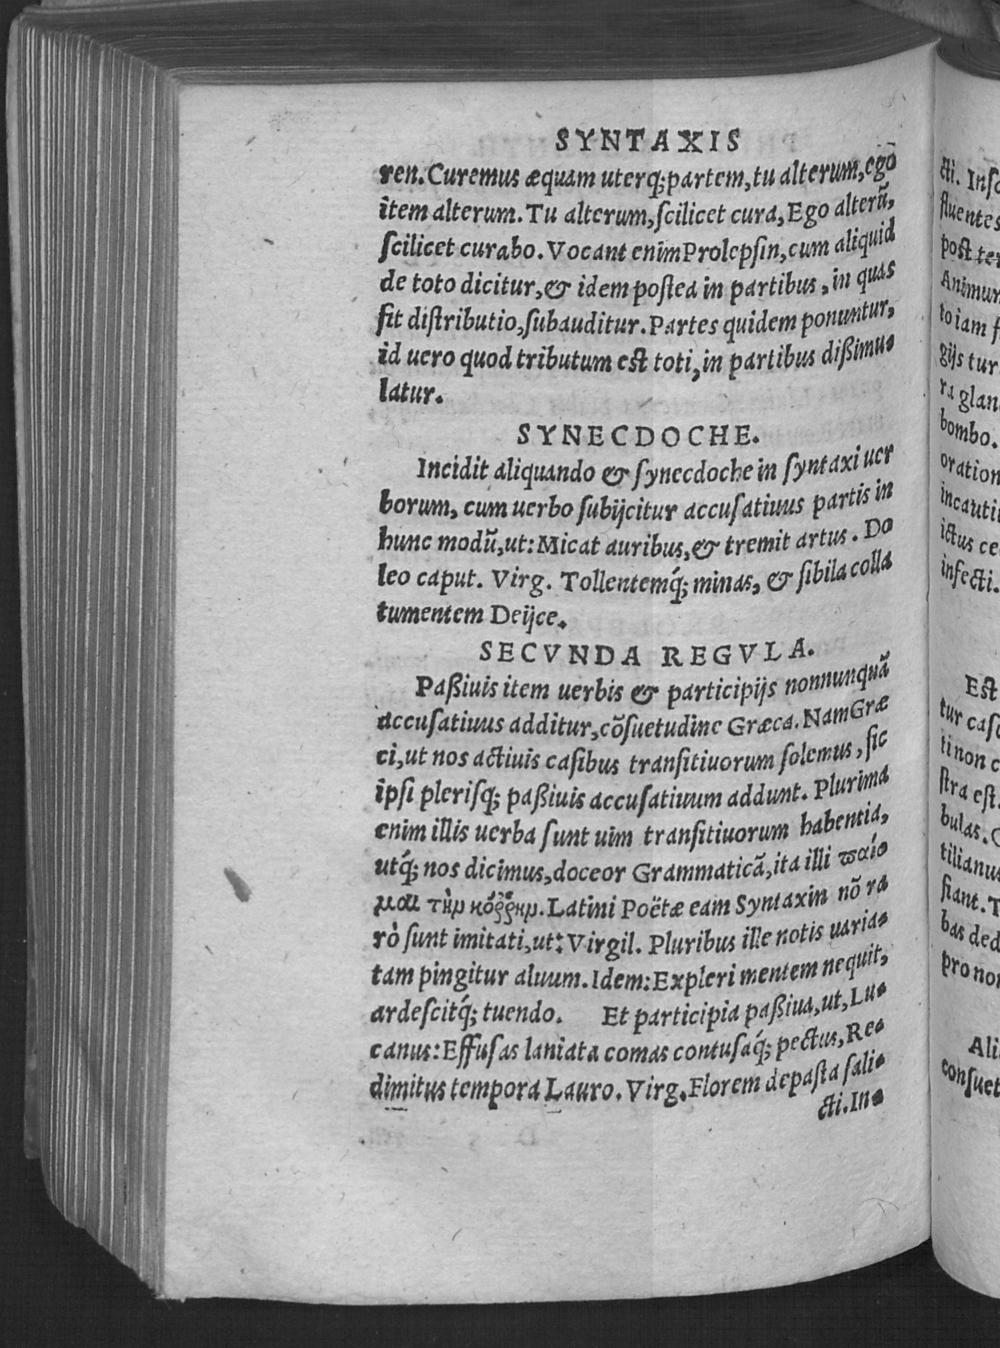 SYNTAXIS
ren. Curemus æquam uterq; partem, tu alterum, ego
item alterum. Tu alterum, ſcilicet cura, Ego alterũ,
ſcilicet curabo. Vocant enim Prolepſin, cum aliquid
de toto dicitur, & idem poſtea in partibus, in quas
fit diſtributio, ſubauditur. Partes quidem ponuntur,
id uero quod tributum est toti, in partibus dißimu⸗
latur.
SYNECDOCHE.
Incidit aliquando & ſynecdoche in ſyntaxi uer
borum, cum uerbo ſubijcitur accuſatiuus partis in
hunc modũ, ut: Micat auribus, & tremit artus. Do
leo caput. Virg. Tollentemq́; minas, & ſibila colla
tumentem Deijce.
SECVNDA REGVLA.
Paßiuis item uerbis & participijs nonnunquã
accuſatiuus additur, cõſuetudine Græca. Nam Græ
ci, ut nos actiuis caſibus tranſitiuorum ſolemus, ſic
ipſi pleriſq; paßiuis accuſatiuum addunt. Plurima
enim illis uerba ſunt uim tranſitiuorum habentia,
utq́; nos dicimus, doceor Grammaticã, ita illi παίο
μαι τὴν
Latini Poëtæ eam Syntaxin nõ ra
rò ſunt imitati, ut: Virgil. Pluribus ille notis uaria⸗
tam pingitur aluum. Idem: Expleri mentem nequit,
ardeſcitq́; tuendo. Et participia paßiua, ut, Lu⸗
canus: Effuſas laniata comas contuſaq́; pectus, Re⸗
dimitus tempora Lauro. Virg. Florem depaſta ſali⸗
cti. In⸗
cti. Inſ
fluentes
poſt
Animum
to iam
gijs tur
ra glan
bombo.
oration
incauti
ictus ce
infecti.
Est
tur caſ
ti non c
ſtra eſt.
bulas.
tilianus
fiant.
bas ded
pro non
Ali
conſuet